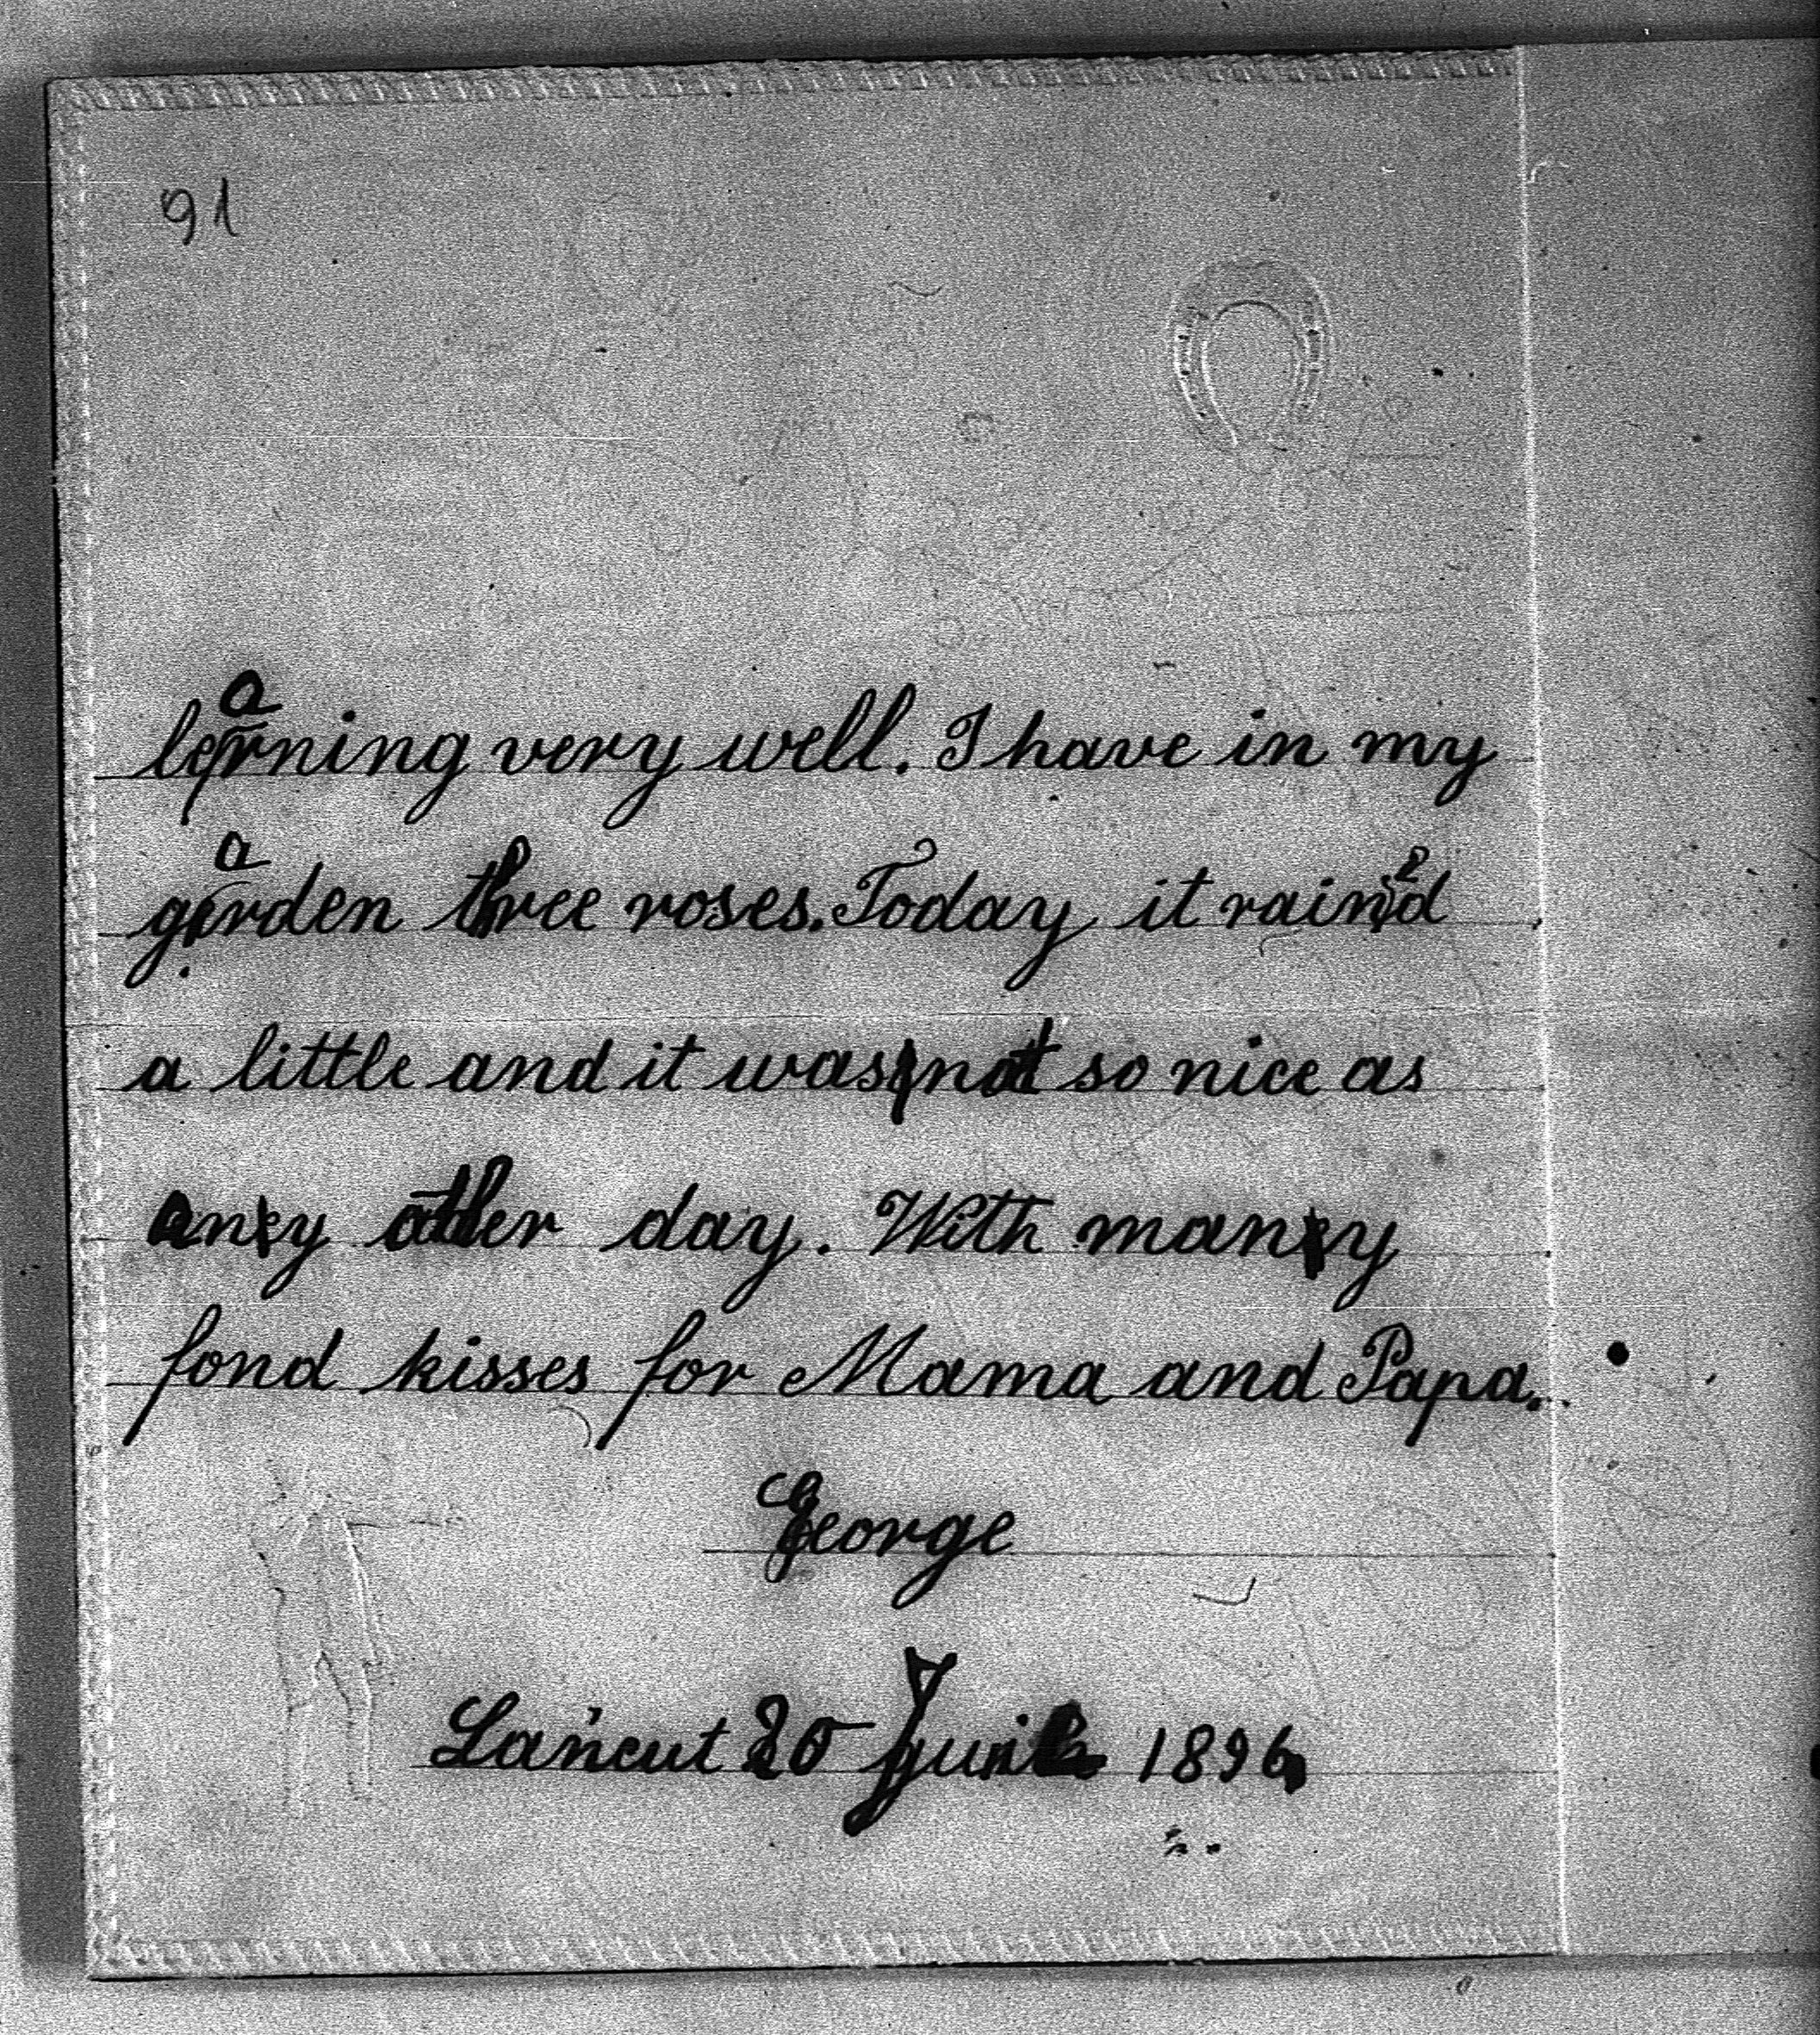 91
learning very well. I have in my
garden three roses. Today it rained
a little and it was not so nice as
any other day. With many
fond kisses for Mama and Papa.
George
Łańcut 20 1896